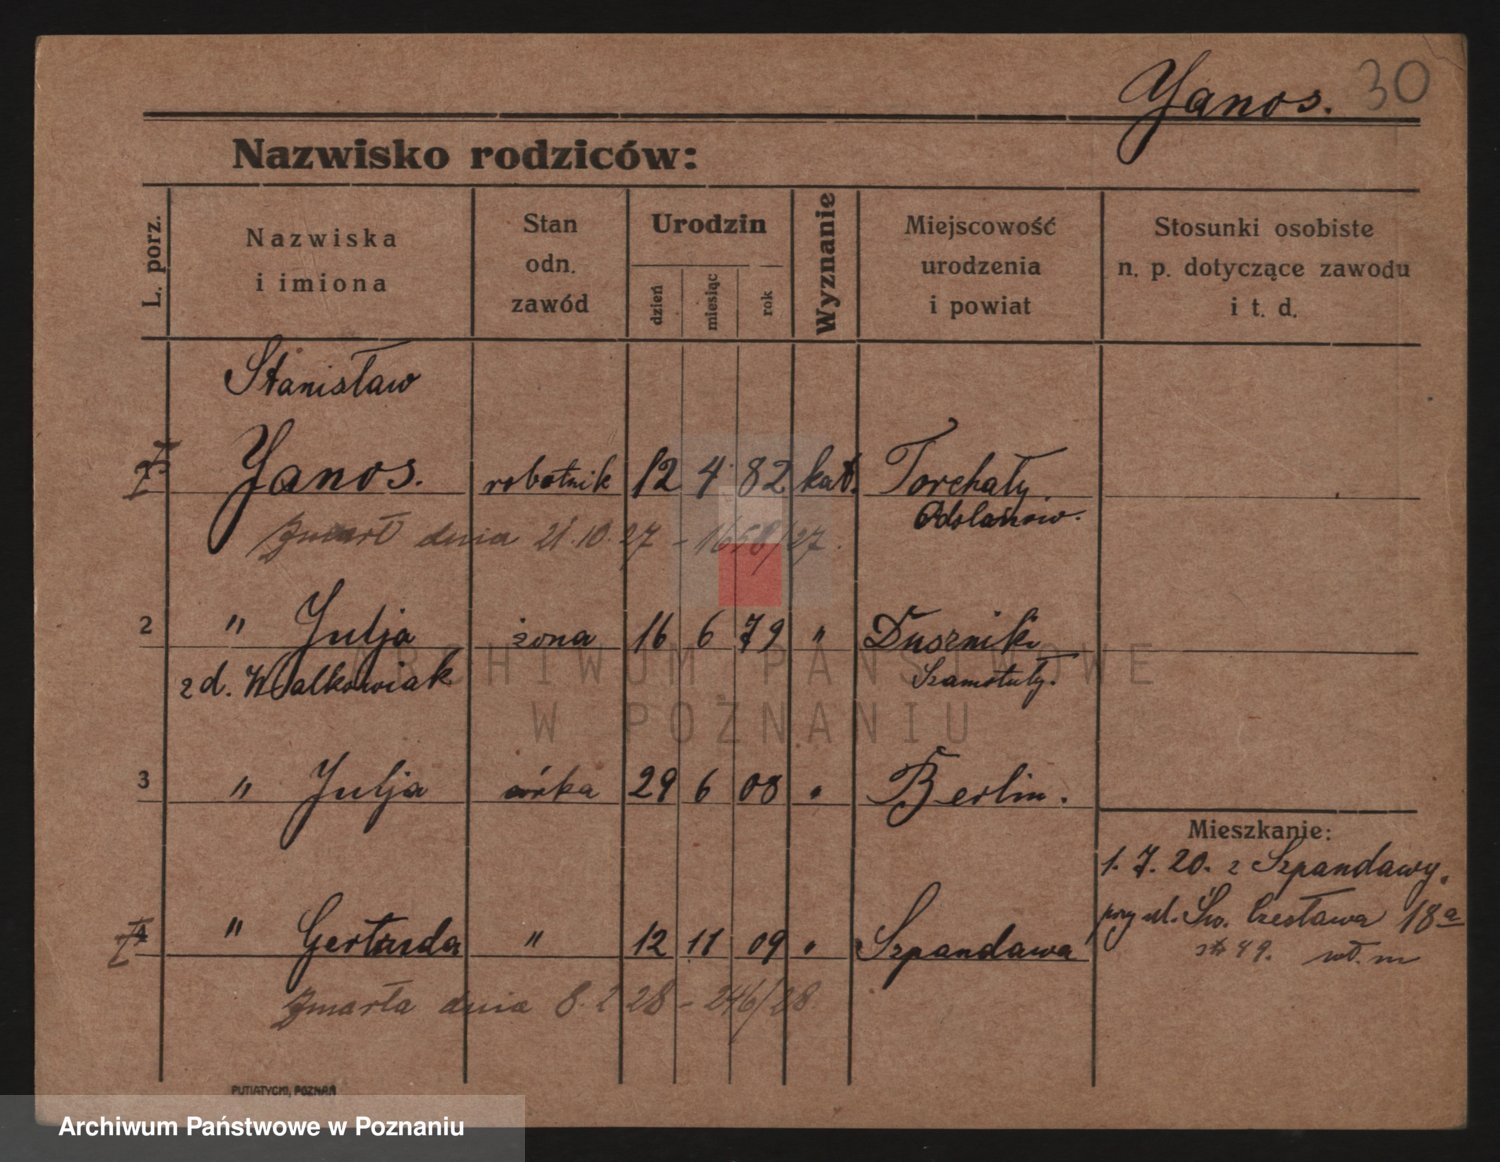 Yanos. 30
Nazwisko rodziców:
L. porz.
Nazwiska
i imiona
Stan
odn.
zawód
Urodzin
dzień
miesiąc
rok
Wyznanie
Miejscowość
urodzenia
i powiat
Stosunki osobiste
n. p. dotyczące zawodu
i t. d.
Stanisław
Yanos. robotnik 12 4 82 kat. Torchały
Odolanow.
Zmarł dnia 21.10.27 - 1658/27.
2 " Julja żona 16 6 79 " Duszniki
z d. Walkowiak Szamotuły.
3 " Julja córka 29 6 08 " Berlin.
Mieszkanie:
1. 7. 20. z Szpandawy,
przy ul. Św. Czesława 18a
4 " Gertruda " 12 11 09 " Szpandawa
49. wł. m
Zmarła dnia 8.2 28 - 246/28
PUTIATYCKI, POZNAŃ
ARCHIWUM PAŃSTWOWE
W POZNANIU
Archiwum Państwowe w Poznaniu